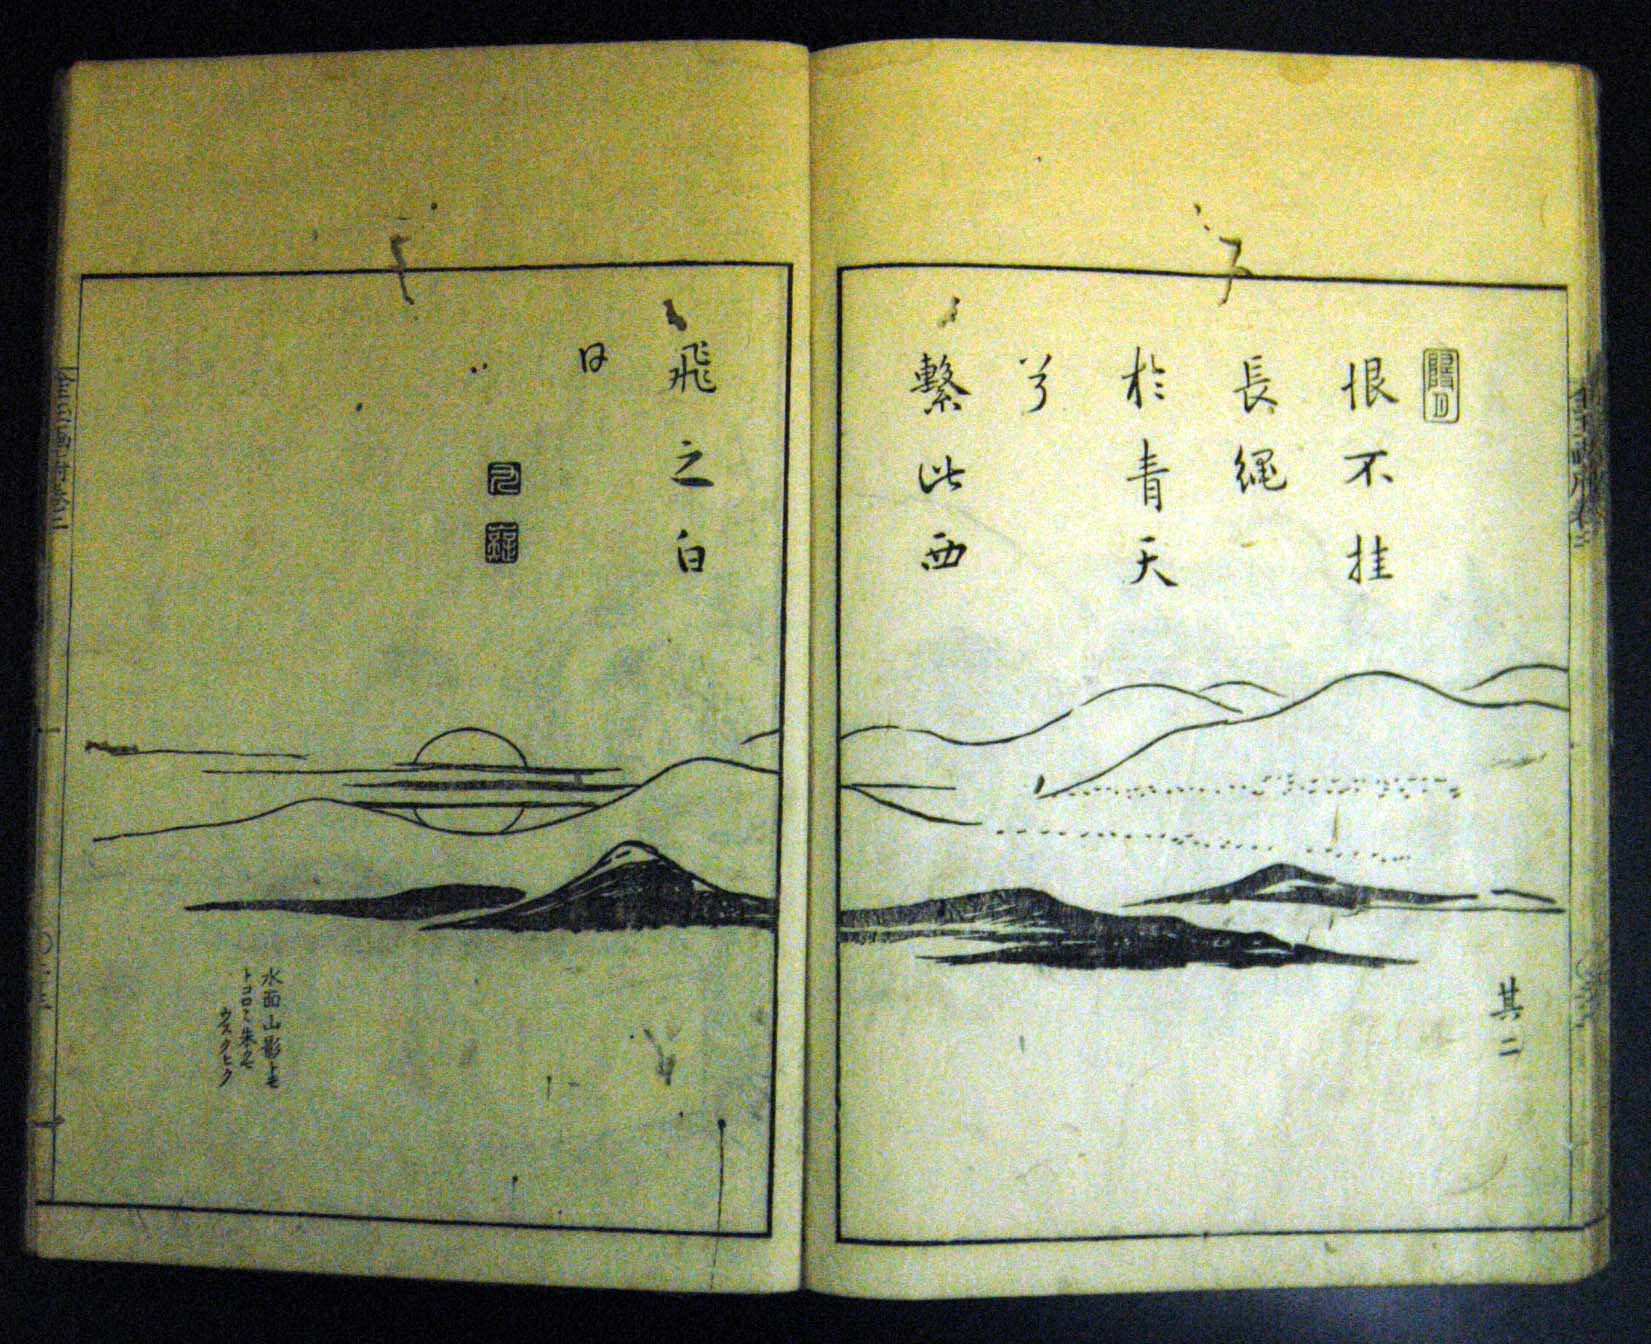 恨不挂
長繩
於青天
兮
繫此西
飛之白
日
其二
水面山影トモ
トコロ〱朱ニテ
ウスクヒク